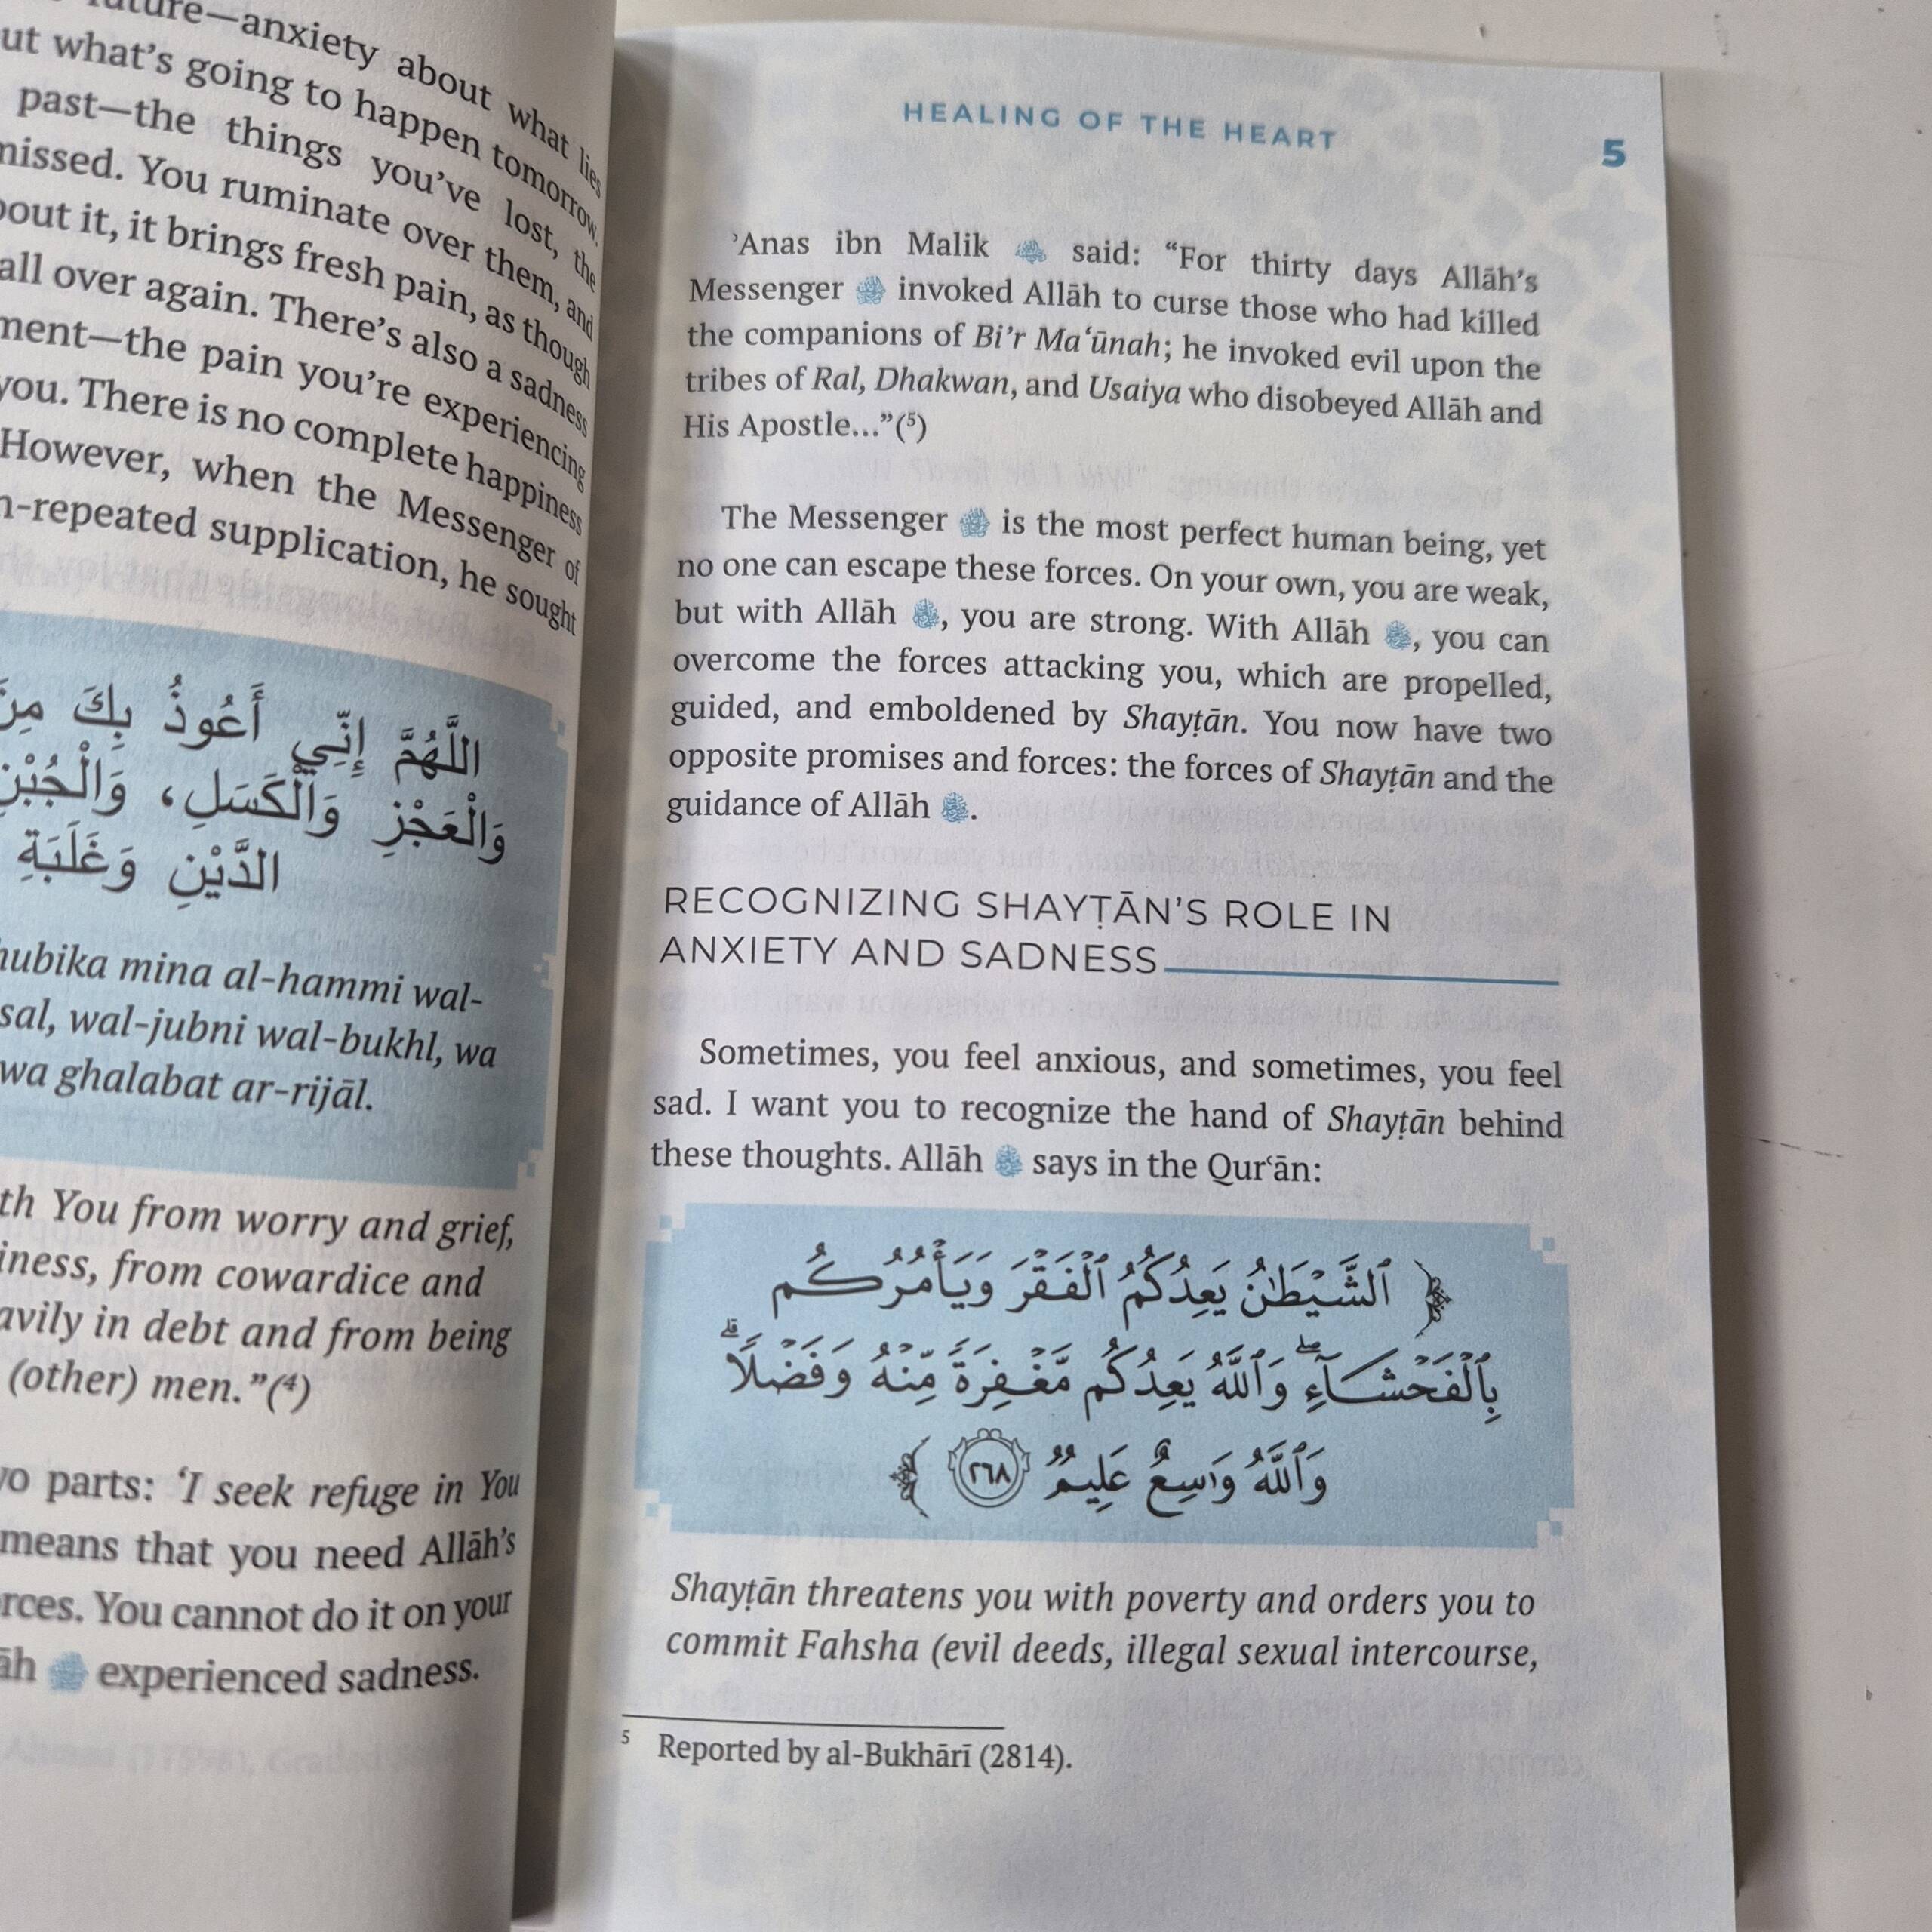 future—anxiety about what lies
what's going to happen tomorrow.
past—the things you've lost, the
missed. You ruminate over them, and
about it, it brings fresh pain, as though
all over again. There's also a sadness
the pain you're experiencing
you. There is no complete happiness
However, when the Messenger of
repeated supplication, he sought
اللَّهُمَّ إِنِّي أَعُوذُ بِكَ مِنَ
وَالْعَجْزِ وَالْكَسَلِ، وَالْجُبْنِ
الدَّيْنِ وَغَلَبَةِ
mina al-hammi wal-
wal-jubni wal-bukhl, wa
wa ghalabat ar-rijāl.
You from worry and grief,
from cowardice and
in debt and from being
(other) men."(⁴)
parts: 'I seek refuge in You
means that you need Allāh's
You cannot do it on your
experienced sadness.
HEALING OF THE HEART
5
'Anas ibn Malik ﷺ said: "For thirty days Allāh's
Messenger ﷺ invoked Allāh to curse those who had killed
the companions of Bi'r Ma'ūnah; he invoked evil upon the
tribes of Ral, Dhakwan, and Usaiya who disobeyed Allāh and
His Apostle..."(⁵)
The Messenger ﷺ is the most perfect human being, yet
no one can escape these forces. On your own, you are weak,
but with Allāh, you are strong. With Allāh, you can
overcome the forces attacking you, which are propelled,
guided, and emboldened by Shayṭān. You now have two
opposite promises and forces: the forces of Shayṭān and the
guidance of Allāh.
RECOGNIZING SHAYṬĀN'S ROLE IN
ANXIETY AND SADNESS
Sometimes, you feel anxious, and sometimes, you feel
sad. I want you to recognize the hand of Shayṭān behind
these thoughts. Allāh says in the Qur'ān:
﴿ ٱلشَّيْطَٰنُ يَعِدُكُمُ ٱلْفَقْرَ وَيَأْمُرُكُم
بِٱلْفَحْشَآءِ ۖ وَٱللَّهُ يَعِدُكُم مَّغْفِرَةً مِّنْهُ وَفَضْلًا ۗ
وَٱللَّهُ وَٰسِعٌ عَلِيمٌ ٢٦٨ ﴾
Shayṭān threatens you with poverty and orders you to
commit Fahsha (evil deeds, illegal sexual intercourse,
5 Reported by al-Bukhārī (2814).